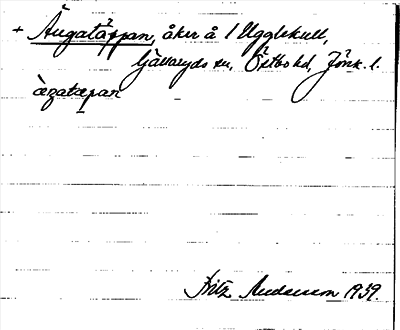 + Ängatäppan, åker å 1 Ugglekull,
Gällaryds sn, Östbo hd, Jönk. l.
ängatäpan
Fritz Andersson 1939.